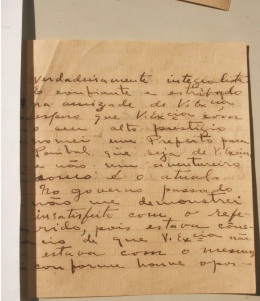 verdadeiramente integralista
E confiante e estribado
na amizade de V. Excia,
espero que V. Excia com
o seu alto prestigio
um Prefeito para
que seja de V. Excia
e não um aventureiro
como é o atual.
No governo passado
não me demonstrei
insatisfeito com o refe-
rido, pois estava cons-
cio de que V. Excia não
estava com o mesmo
conforme houve opor-